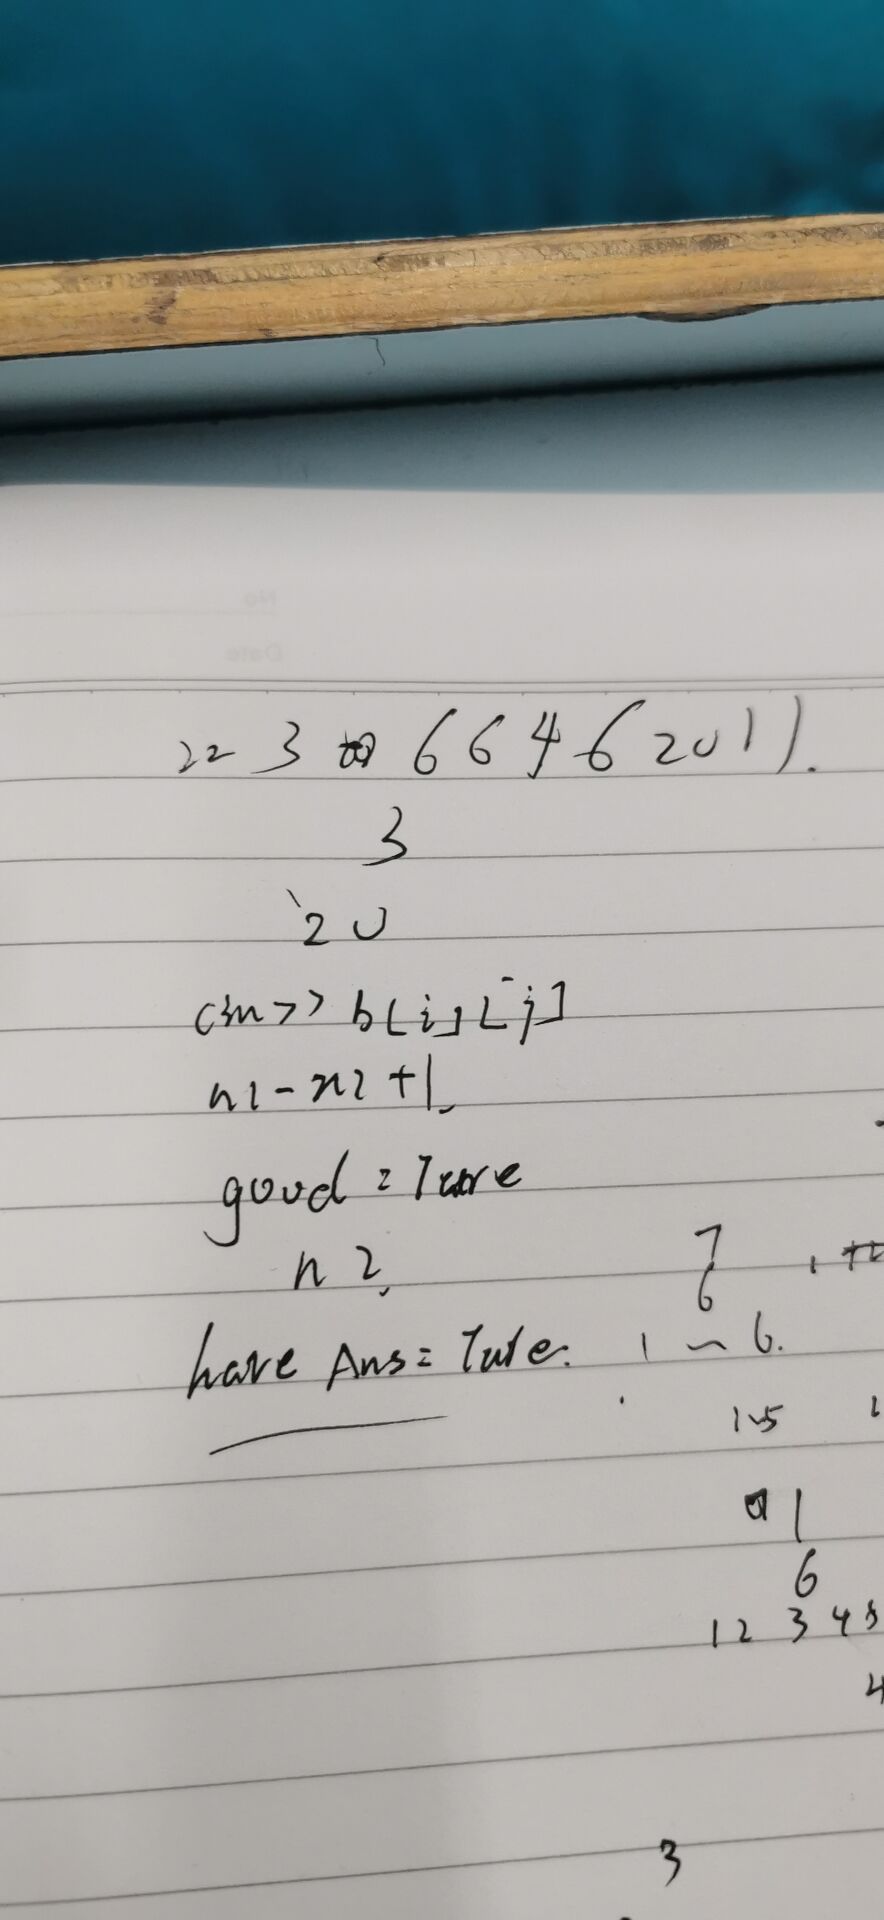 22 3 6 6 4 6 2 0 1 1.
3
2 0
cin>> b[i][j]
n1-n2+1.
good = Ture
n2.
7
6
have Ans = Ture.
1 ~ 6.
1~5
1
6
1 2 3 4 5
4
3